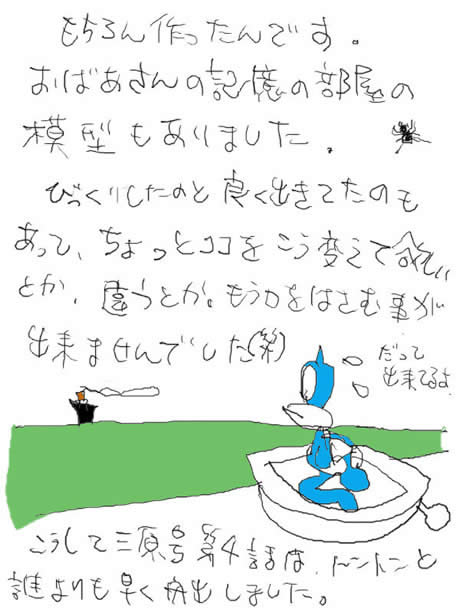 もちろん作ったんです。
おばあさんの記憶の部屋の
模型もありました。
びっくりしたのと良く出きてたのも
あって、ちょっとココをこう変えて欲しい
とか、違うとか。もうカをはさむ事が
出来ませんでした(笑)
だって
出来てるよ
こうして三原号第4話は、トントンと
誰よりも早く舟出しました。